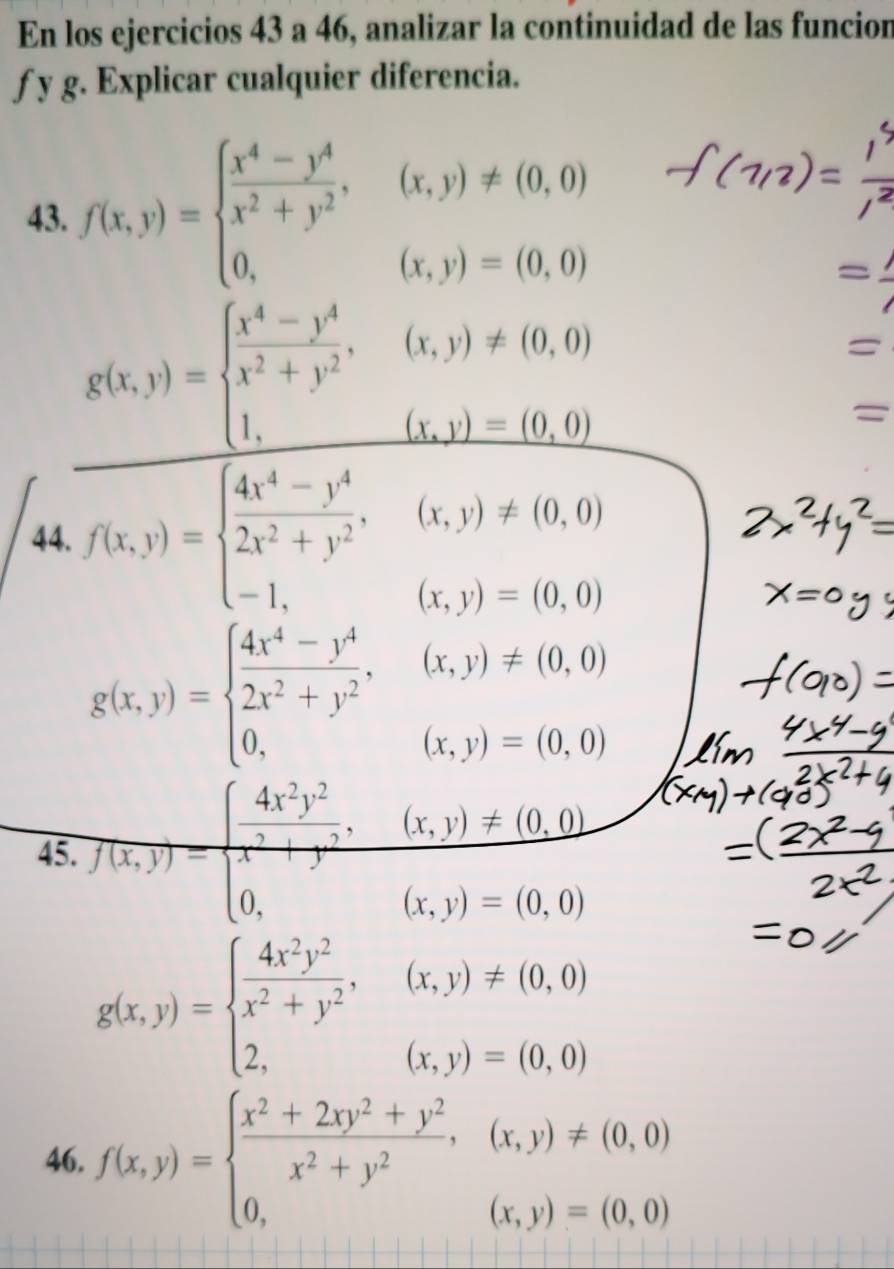 En los ejercicios 43 a 46, analizar la continuidad de las funcion
f y g. Explicar cualquier diferencia.
43. f(x, y) = { (x⁴ − y⁴)/(x² + y²), (x, y) ≠ (0, 0)
0, (x, y) = (0, 0)
g(x, y) = { (x⁴ − y⁴)/(x² + y²), (x, y) ≠ (0, 0)
1, (x, y) = (0, 0)
44. f(x, y) = { (4x⁴ − y⁴)/(2x² + y²), (x, y) ≠ (0, 0)
−1, (x, y) = (0, 0)
g(x, y) = { (4x⁴ − y⁴)/(2x² + y²), (x, y) ≠ (0, 0)
0, (x, y) = (0, 0)
45. f(x, y) = { 4x²y²/(x² + y²), (x, y) ≠ (0, 0)
0, (x, y) = (0, 0)
g(x, y) = { 4x²y²/(x² + y²), (x, y) ≠ (0, 0)
2, (x, y) = (0, 0)
46. f(x, y) = { (x² + 2xy² + y²)/(x² + y²), (x, y) ≠ (0, 0)
0, (x, y) = (0, 0)
=
=
=
2x²+y²=
x=0 y
f(0,0)=
lím (4x⁴−y
(x,y)→(0,0) 2x²+y
=(2x²−y
2x²
=0//